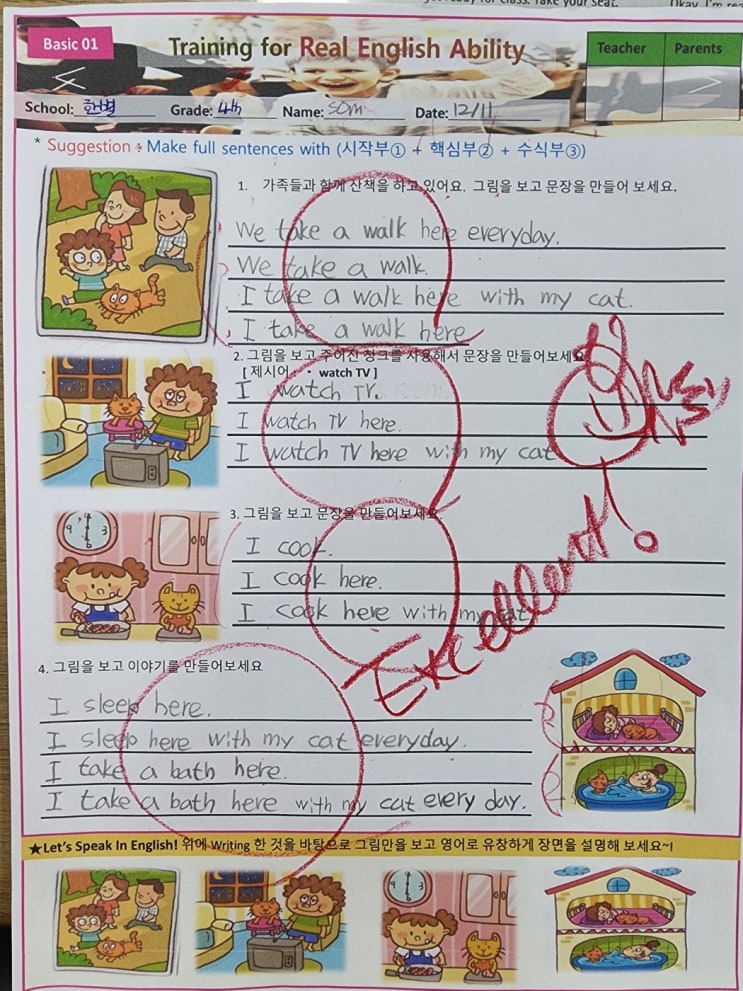 Okay, I'm rea
Basic 01
Training for Real English Ability
Teacher
Parents
School: 한별 Grade: 4th Name: som Date: 12/11
* Suggestion : Make full sentences with (시작부① + 핵심부② + 수식부③)
1. 가족들과 함께 산책을 하고 있어요. 그림을 보고 문장을 만들어 보세요.
We take a walk here everyday.
We take a walk.
I take a walk here with my cat.
I take a walk here
2. 그림을 보고 주어진 청크를 사용해서 문장을 만들어보세요
[ 제시어 : • watch TV ]
I watch TV.
I watch TV here.
I watch TV here with my cat
3. 그림을 보고 문장을 만들어보세요
I cook.
I cook here.
I cook here with my cat
Excellent!
4. 그림을 보고 이야기를 만들어보세요
I sleep here.
I sleep here with my cat everyday.
I take a bath here.
I take a bath here with my cat every day.
★Let's Speak In English! 위에 Writing 한 것을 바탕으로 그림만을 보고 영어로 유창하게 장면을 설명해 보세요~!